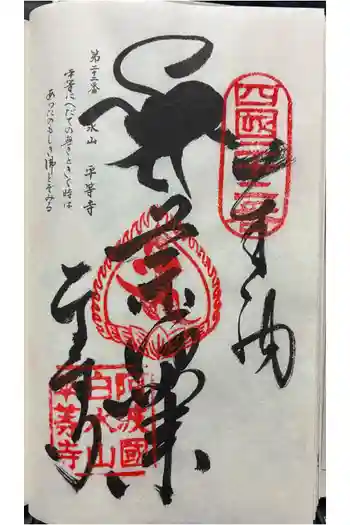 奉納
四国二十二番
平等寺
第二十二番 水山 平等寺
平等にへだての無きときく時は
あらたのもしき佛とぞみる
阿波國
白水山
平等寺